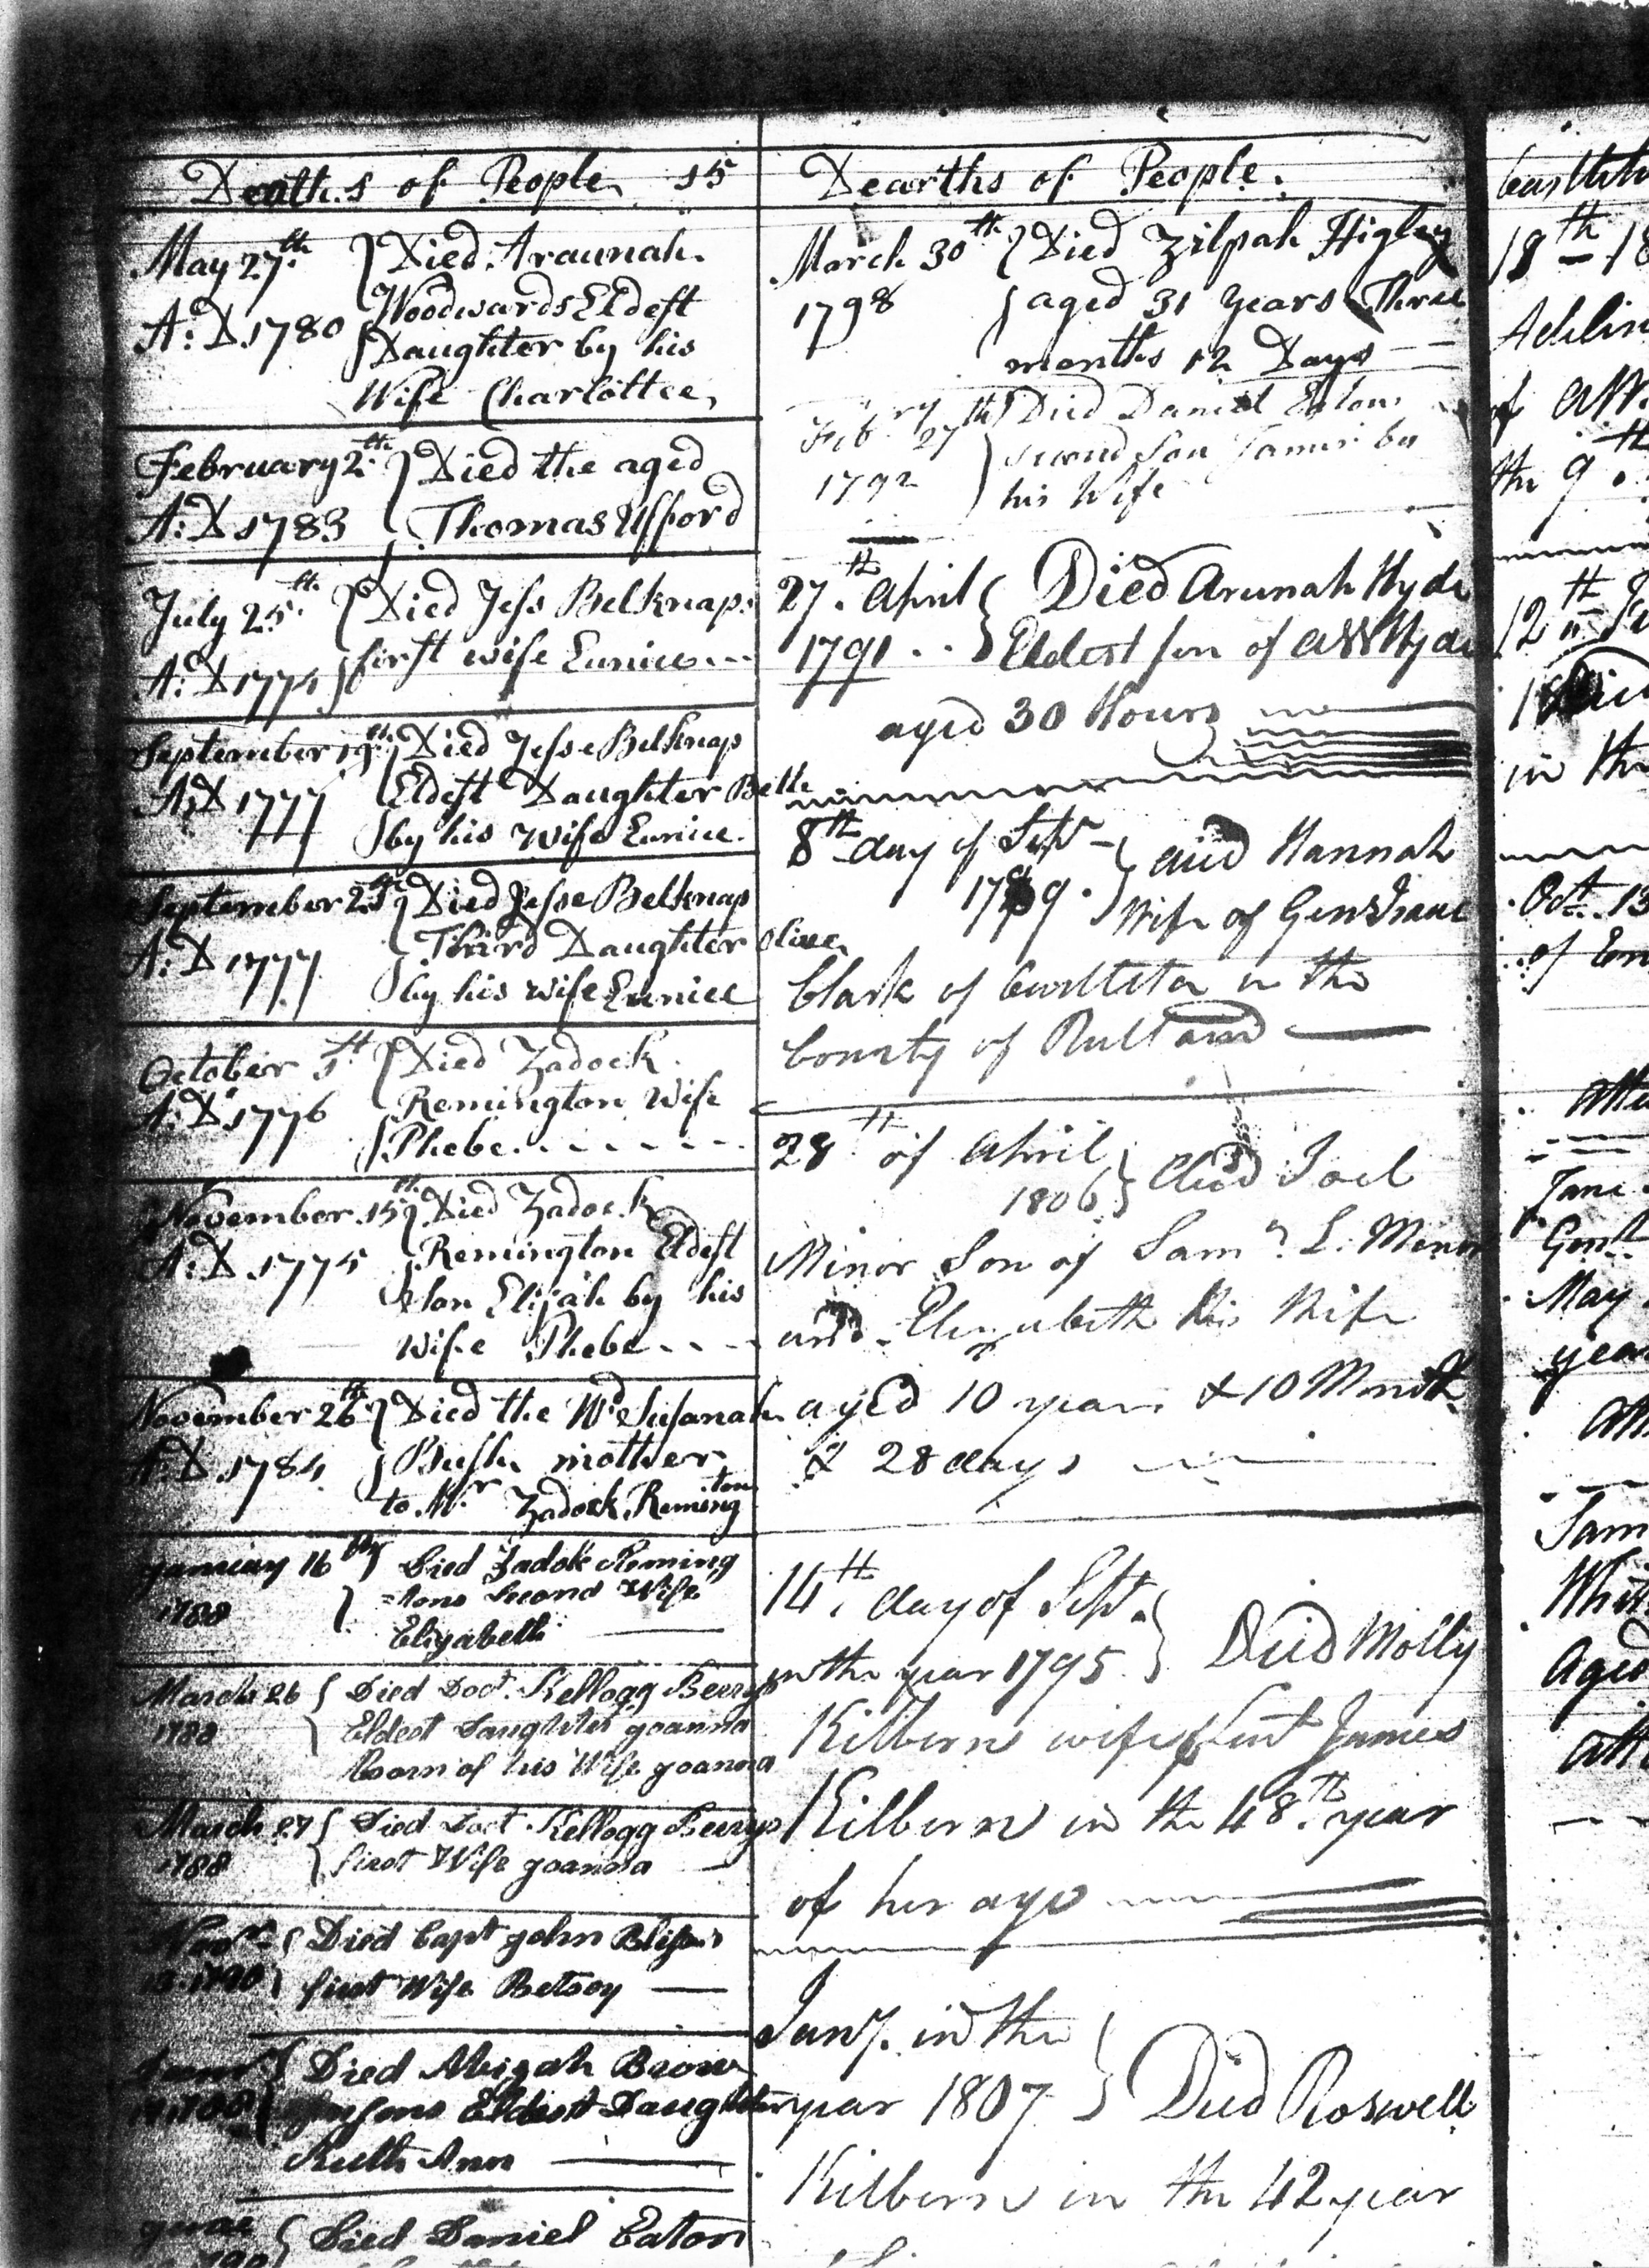 Deaths of People 15
May 27th } Died Araunah
Woodwards Eldest
A:D 1780 } Daughter by his
Wife Charlottee
February 2th } Died the aged
A:D 1783 } Thomas Ufford
July 25th } Died Jess Belknaps
first wife Eunice
A:D 1774
September 19th } Died Jesse Belknap
A:D 1777 Eldest Daughter Belle
by his Wife Eunice
September 25th } Died Jesse Belknap
A:D 1777 Third Daughter Olive
by his wife Eunice
October 1st } Died Zadock
A:D 1776 Remington Wife
Phebe
November 15th } Died Zadock
A:D 1775 Remington Eldest
Son Elijah by his
Wife Phebe
November 26th } Died the Wd Susanah
A:D 1784 } Bush mother
to Mr Zadock Remington
January 16th } Died Zadok Reming
1788 } =tons Second Wife
Elizabeth
March 26 { Died Doct. Kellogg Berrys
1788 Eldest Daughter Joanna
Boarn of his Wife Joanna
March 27 { Died Doct. Kellogg Berrys
1788 first Wife Joanna
Died Capt John
13 1790 first Wife Betsey
Died Abizah Brown
Eldest Daughter
Ruth Ann
June { Died Daniel Eaton
Dearths of People.
March 30th } Died Zilpah Higley
1798 } aged 31 Years Three
months 12 Days
Febry 27th } Died Daniel Eaton
second Son by
1792
his Wife
27th April { Died Arunah Hyde
1791 .. } Eldest son of AW Hyde
aged 30 Hours
8th day of Septr } died Hannah
17 9. } Wife of Genl Isaac
Clark of Castleton in the
County of Rutland
28th of April } died Joel
1806
Minor Son of Saml. L. Minor
and Elizabeth his Wife
aged 10 years & 10 Month
& 28 days
14th day of Sept. } Died Molly
in the year 1795 }
Kilborn wife of Lieut James
Kilborn in the 48th year
of her age
Jany. in the }
year 1807 } Died Roswell
Kilborn in the 42 year
18th
the 9
12th
in the
Oct. 13
of
June
Genl
May
year
Sam
Aged